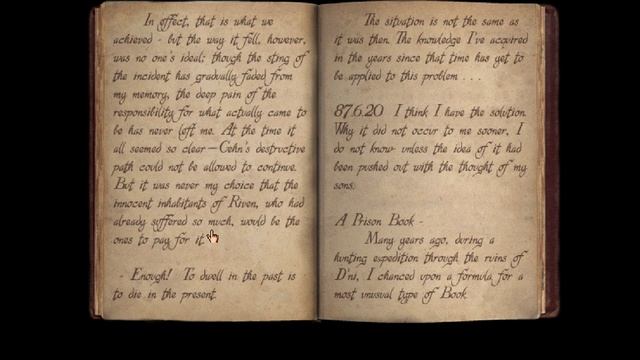 In effect, that is what we
achieved - but the way it fell, however,
was no one's ideal; though the sting of
the incident has gradually faded from
my memory, the deep pain of the
responsibility for what actually came to
be has never left me. At the time it
all seemed so clear—Gehn's destructive
path could not be allowed to continue.
But it was never my choice that the
innocent inhabitants of Riven, who had
already suffered so much, would be the
ones to pay for it.
- Enough! To dwell in the past is
to die in the present.
The situation is not the same as
it was then. The knowledge I've acquired
in the years since that time has yet to
be applied to this problem . . .
87.6.20 I think I have the solution.
Why it did not occur to me sooner, I
do not know- unless the idea of it had
been pushed out with the thought of my
sons.
A Prison Book -
Many years ago, during a
hunting expedition through the ruins of
D'ni, I chanced upon a formula for a
most unusual type of Book